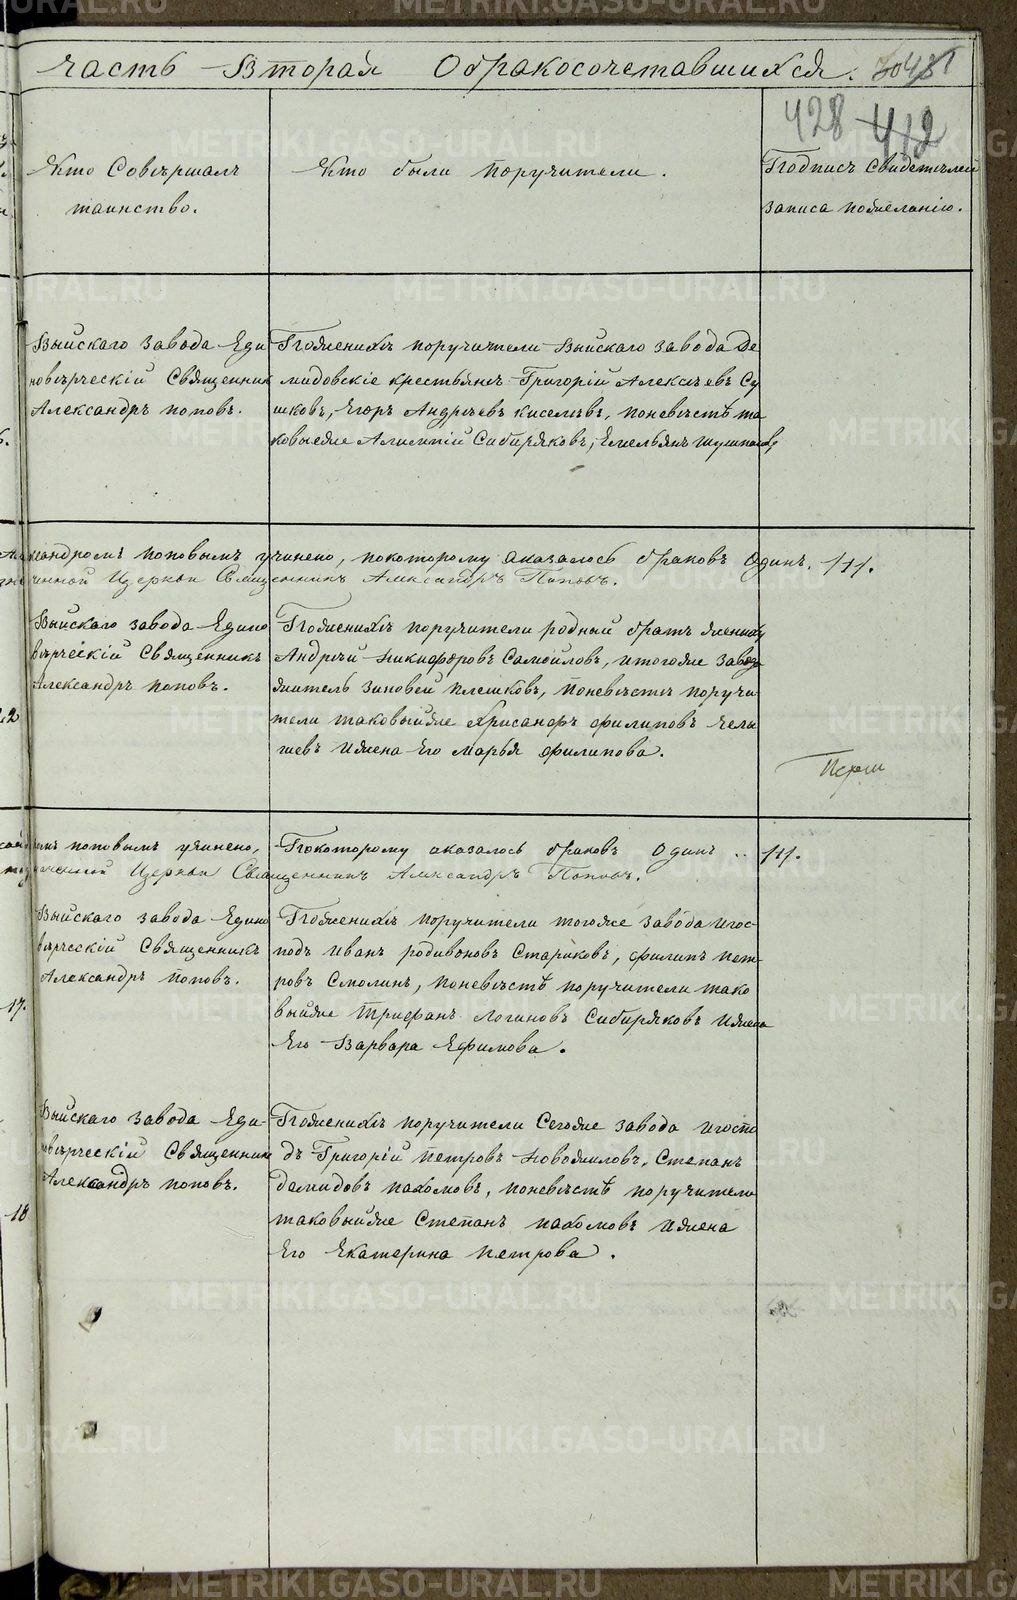 Часть Вторая Обракосочетавшихся.
428 412
Кто Совѣршалъ
таинство.
Кто были поручители.
Подпись Свидетѣлей
записа пожѣланію.
Выйскаго завода Еди
новѣрческій Священник
Александръ поповъ.
Пожених​ѣ поручители Выйскаго завода Де
мидовскіе крестьянѣ Григорій Алексѣевъ Су
шковъ, Егоръ Андрѣевъ киселѣвъ, поневѣстѣ та
ковыеже Алимпій Сибиряковъ, Емельянъ
ксандромъ поповымъ учинено, покоторому аказалось браковъ Одинъ. 1/1/1.
ченной Церкви Священникъ Александръ Поповъ.
Выйскаго завода Едино
вѣрческій Священникъ
Александръ поповъ.
Поженихѣ поручители родный братъ жениху
Андрѣй никифоровъ Самойловъ, итогоже завода
житель Зиновей плешковъ, поневѣстѣ поручи
тели таковыйже Хрисанфъ филиповъ челы
шевъ ижена Его Марья филипова.
поповымъ учинено, Покоторому аказалось браковъ Одинъ .. 1/1.
Церкви Священникъ Александръ Поповъ.
Выйскаго завода Едино
вѣрческій Священникъ
Александръ поповъ.
17.
Поженихѣ поручители тогоже завода игос-
подъ Иванъ родивоновъ Стариковъ, филипъ пет-
ровъ Смолинъ, поневѣстѣ поручители тако
выйже Трифанъ Логиновъ Сибиряковъ ижена
Его Варвара Ефимова.
Выйскаго завода Еди-
новѣрческій Священник
Александръ поповъ.
18
Поженихѣ поручители Сегоже завода игоспо
дъ Григорій петровъ новожиловъ, Степанъ
демидовъ пахомовъ, поневѣстѣ поручители
таковыйже Степанъ пахомовъ ижена
Его Екатерина петрова.
METRIKI.GASO-URAL.RU